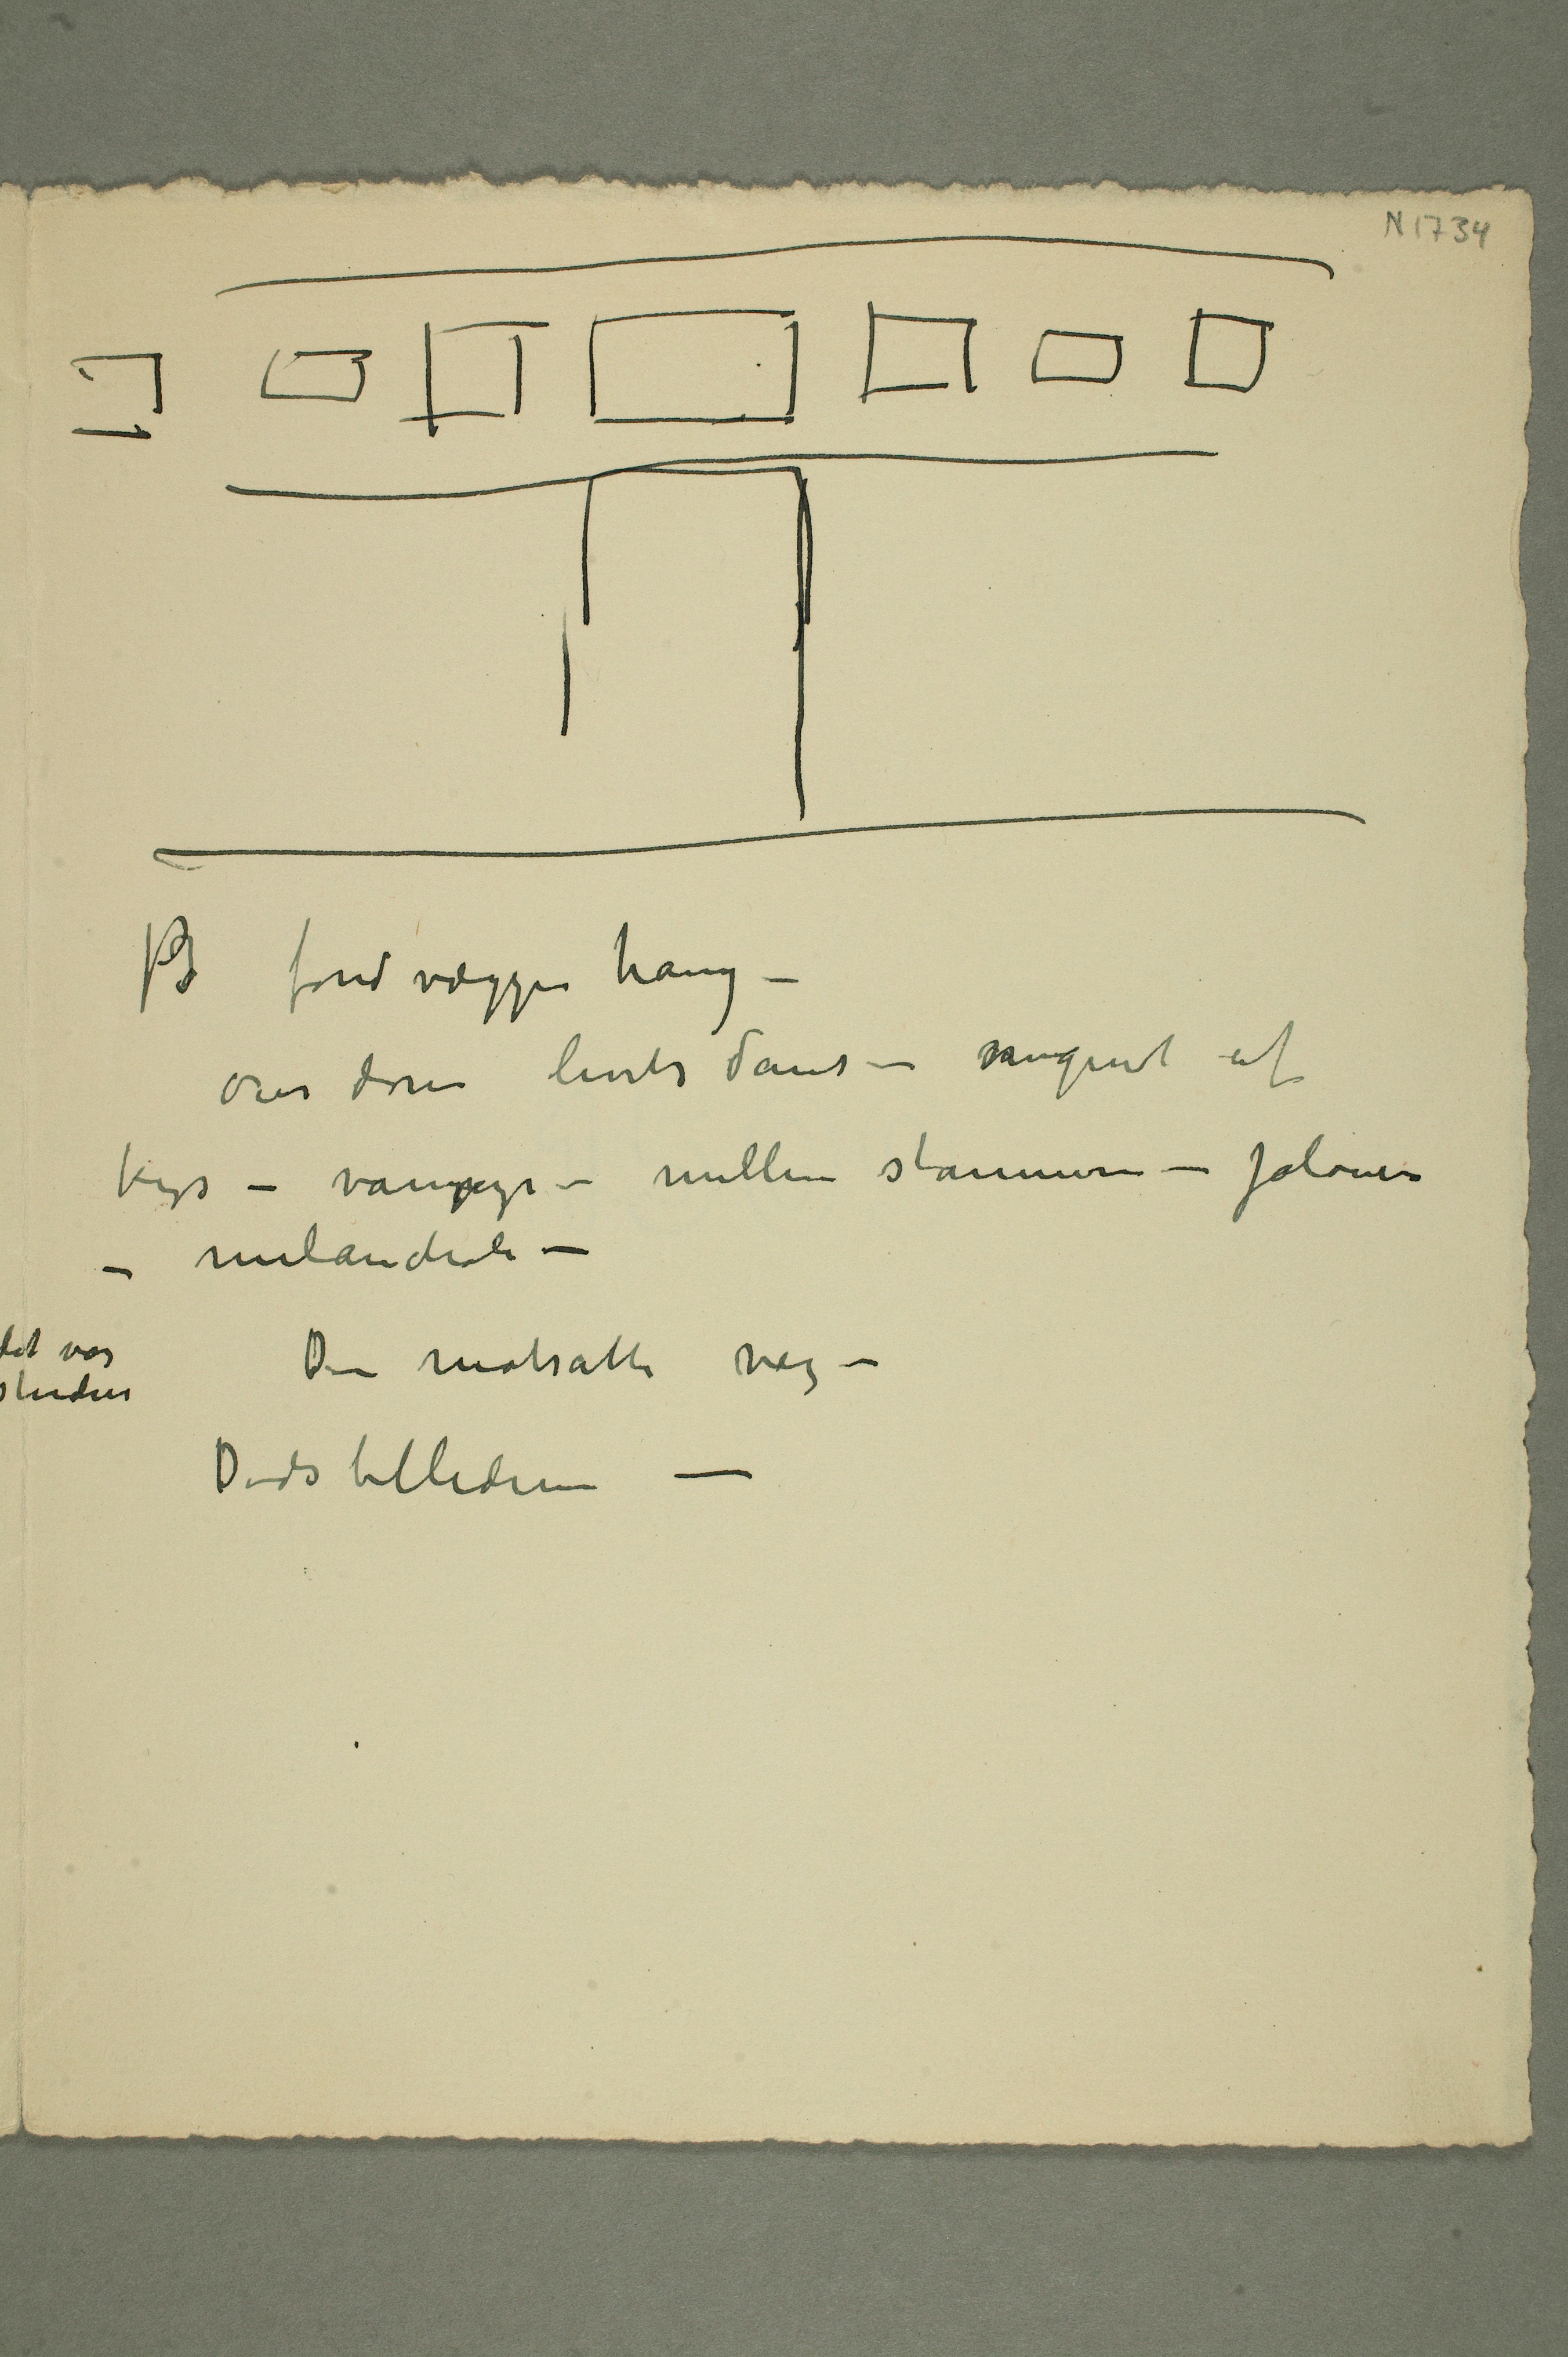 N 1734
På fondvæggen hang –
over døren livets dans – omgivet af
kys – vampyr – mellem stammerne – Jalousi
– melancholi –
det var
Den motsatte væg –
Dødsbillederne —